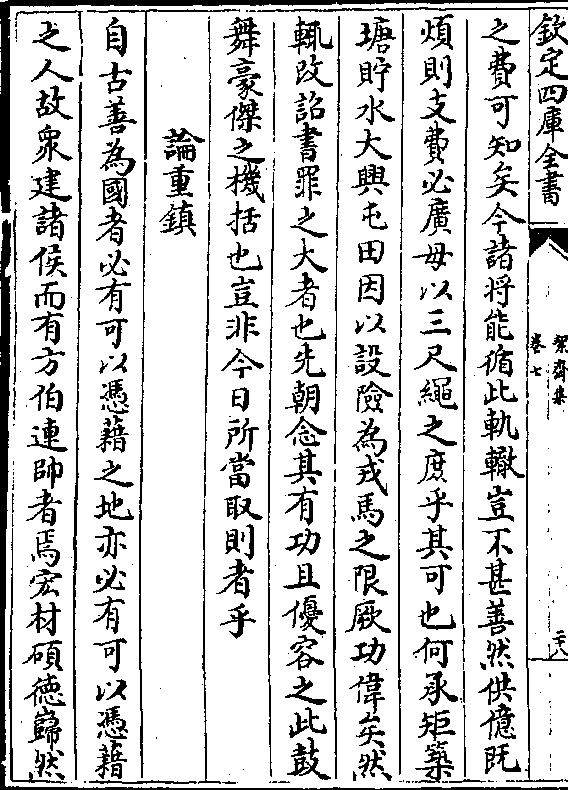 欽定四庫全書
絜齋集
卷七
二八
之費可知矣今諸将能循此軌轍豈不甚善然供億既
煩則支費必廣毋以三尺繩之庶乎其可也何承矩築
塘貯水大興屯田因以設險為戎馬之限厥功偉矣然
輒改詔書罪之大者也先朝念其有功且優容之此鼓
舞豪傑之機括也豈非今日所當取則者乎
論重鎮
自古善為國者必有可以憑藉之地亦必有可以憑藉
之人故衆建諸侯而有方伯連帥者焉宏材碩德巋然